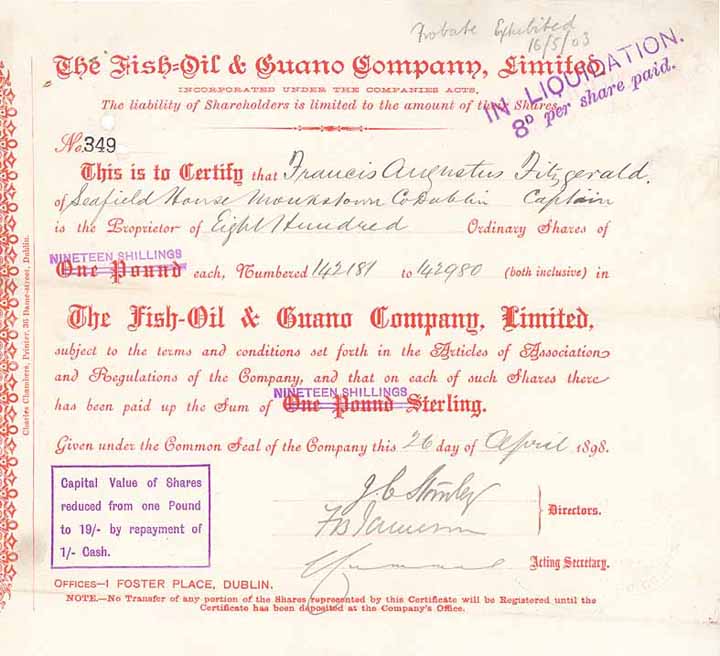 Probate Exhibited
16/5/03
The Fish-Oil & Guano Company, Limited,
INCORPORATED UNDER THE COMPANIES ACTS.
The liability of Shareholders is limited to the amount of their Shares.
IN LIQUIDATION.
8D per share paid.
No. 349
This is to Certify that Francis Augustus Fitzgerald.
of Seafield House Monkstown Co Dublin Captain
is the Proprietor of Eight Hundred Ordinary Shares of
NINETEEN SHILLINGS
One Pound each, Numbered 142181 to 142980 (both inclusive) in
The Fish-Oil & Guano Company, Limited,
subject to the terms and conditions set forth in the Articles of Association
and Regulations of the Company, and that on each of such Shares there
NINETEEN SHILLINGS
has been paid up the Sum of One Pound Sterling.
Given under the Common Seal of the Company this 26 day of April 1898.
Capital Value of Shares
reduced from one Pound
to 19/- by repayment of
1/- Cash.
Directors.
Acting Secretary.
OFFICES—1 FOSTER PLACE, DUBLIN.
NOTE.—No Transfer of any portion of the Shares represented by this Certificate will be Registered until the
Certificate has been deposited at the Company's Office.
Charles Chambers, Printer, 36 Dame-street, Dublin.